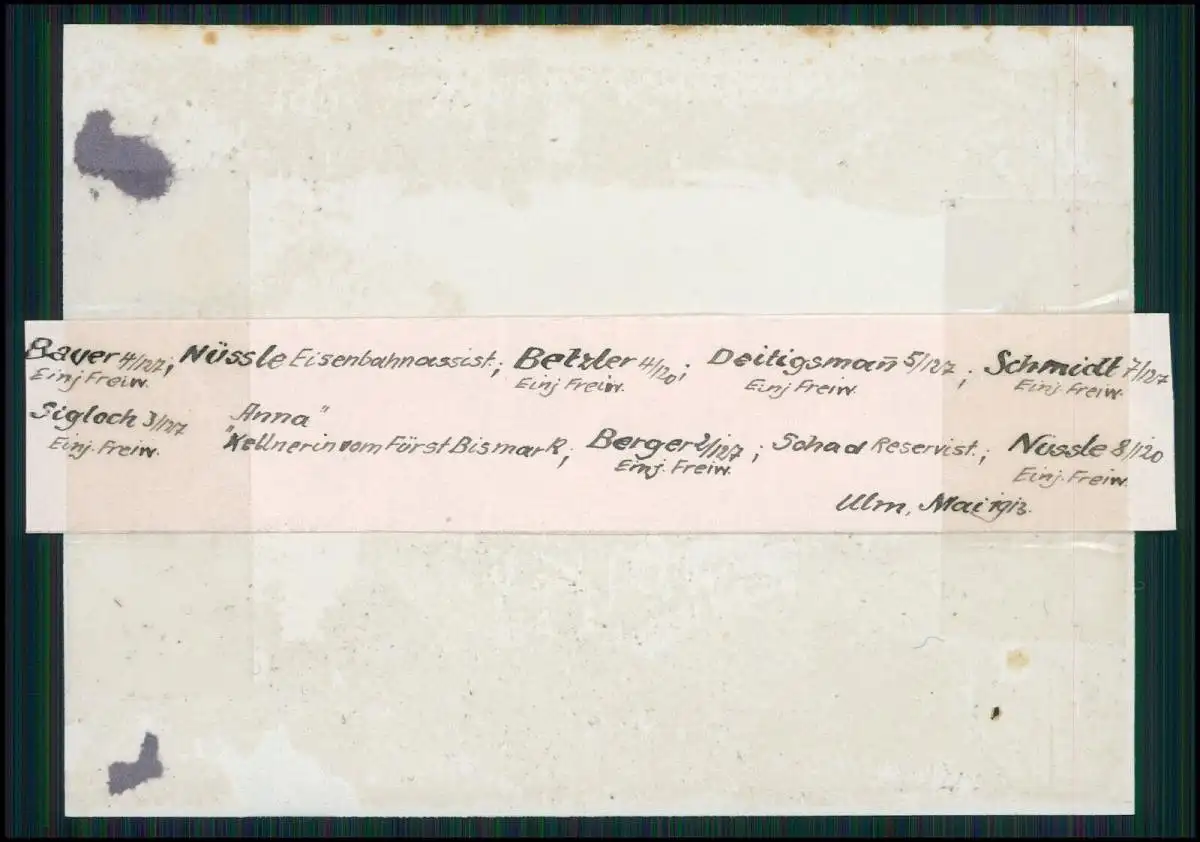 Bayer 4/127; Nüssle Eisenbahnassist.; Betzler 4/120; Deitigsman̄ 5/127; Schmidt 7/127
Einj Freiw. Einj Freiw. Einj Freiw. Einj. Freiw.
Sigloch 3/127 "Anna"
Einj. Freiw. "Kellnerin vom Fürst Bismark; Berger 2/127; Schad Reservist.; Nüssle 8/120
Einj. Freiw. Einj. Freiw.
Ulm, Mai 1913.